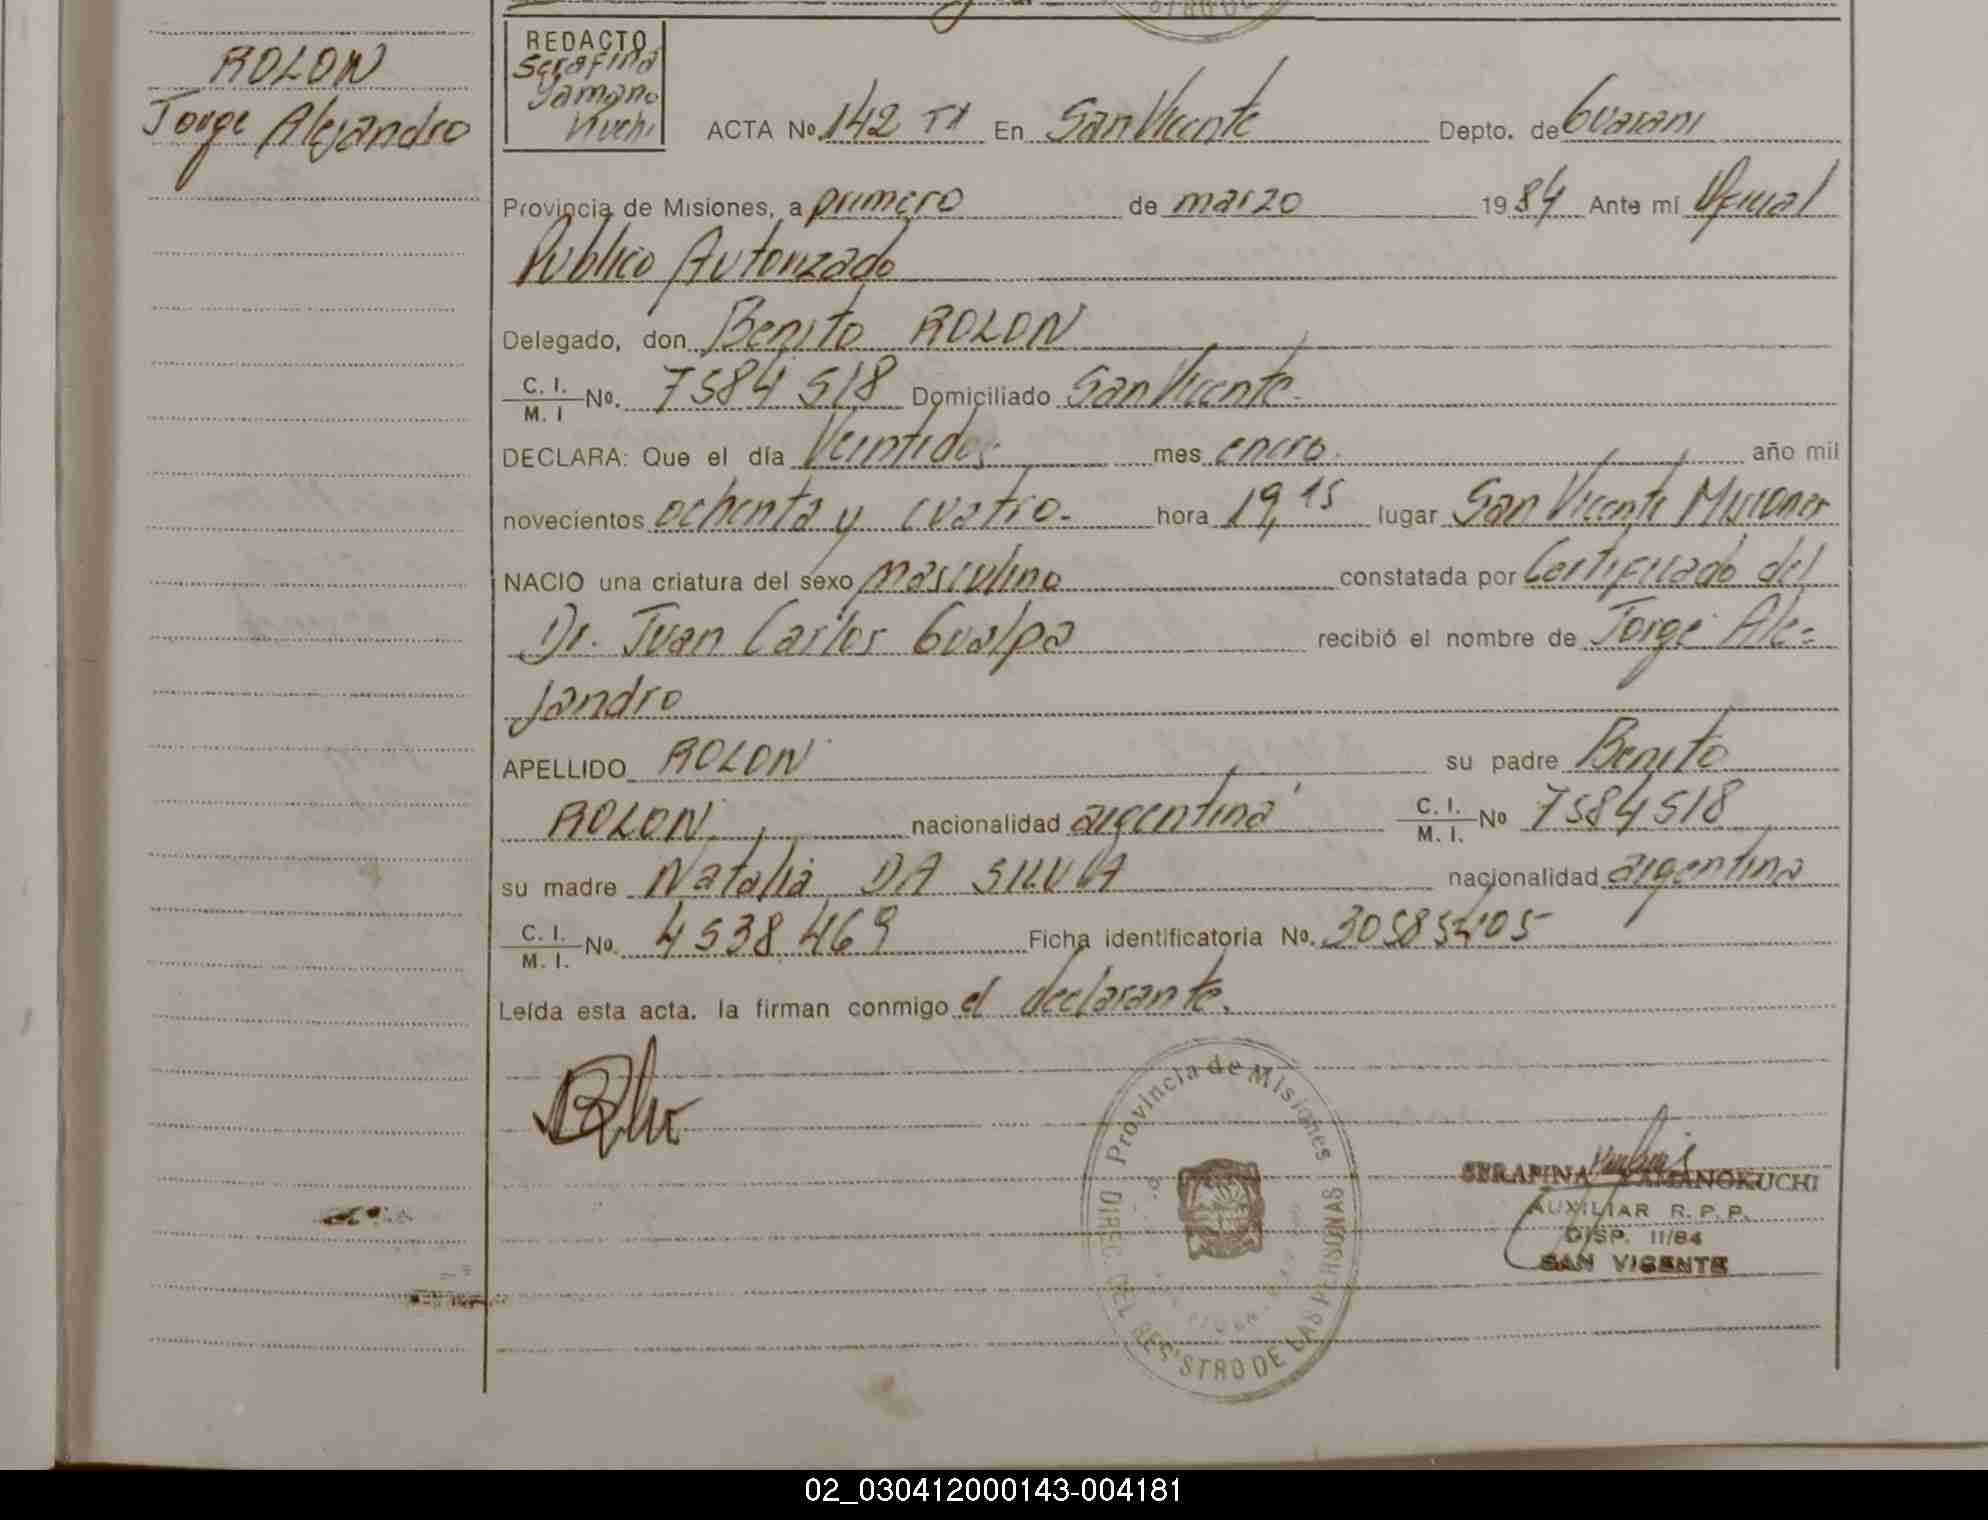 ROLON
Jorge Alejandro
REDACTO
Serafina
Yamano
Kuchi
ACTA Nº 142 TI En San Vicente Depto. de Guaraní
Provincia de Misiones, a primero de marzo 1984 Ante mi Oficial
Público Autorizado
Delegado, don Benito ROLON
C. I. / M. I No. 7584518 Domiciliado San Vicente
DECLARA: Que el día Veintidos mes enero año mil
novecientos ochenta y cuatro. hora 19,15 lugar San Vicente Misiones
NACIO una criatura del sexo masculino constatada por Certificado del
Dr. Juan Carlos Gualpa recibió el nombre de Jorge Ale=
jandro
APELLIDO ROLON su padre Benito
ROLON nacionalidad argentina C. I. / M. I. Nº 7584518
su madre Natalia DA SILVA nacionalidad argentina
C. I. / M. I. No. 4538469 Ficha identificatoria No. 30585405
Leída esta acta. la firman conmigo el declarante.
Provincia de Misiones
DIREC. DEL REGISTRO DE LAS PERSONAS
SERAFINA YAMANOKUCHI
AUXILIAR R. P. P.
DISP. 11/84
SAN VICENTE
02_030412000143-004181